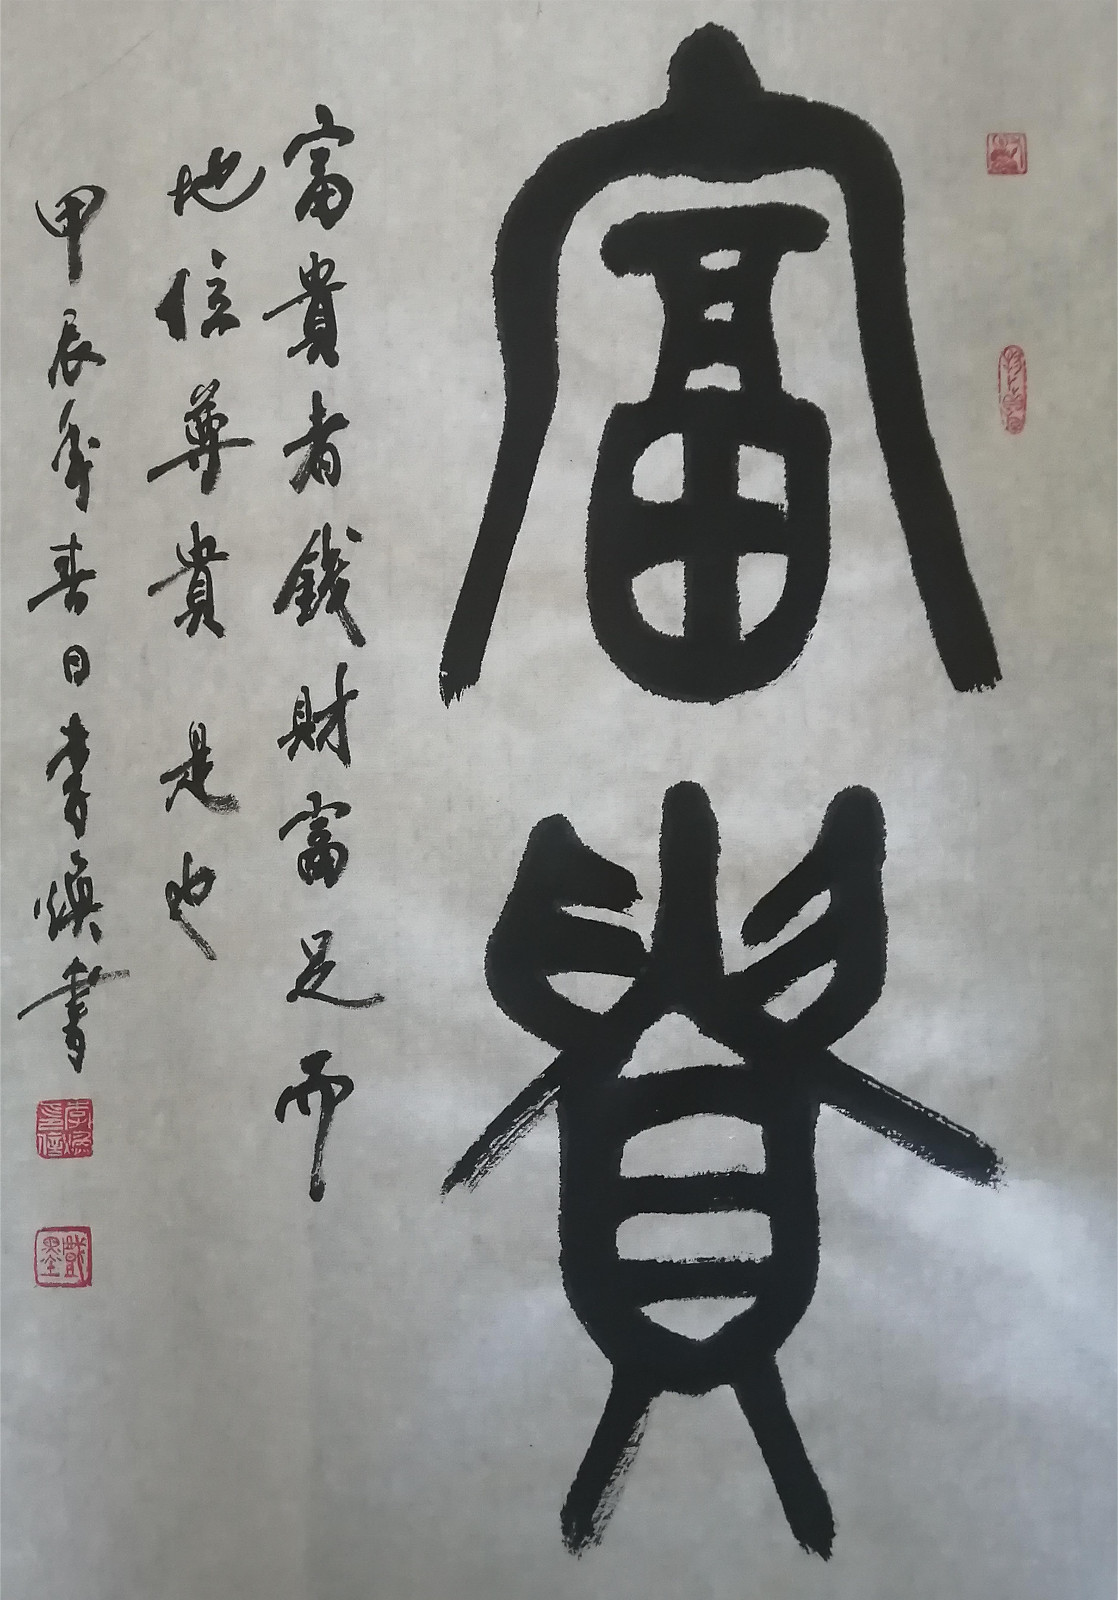 富貴
富貴者錢財富足而
地位尊貴是也
甲辰年春日李煥書
李煥之信
戲墨